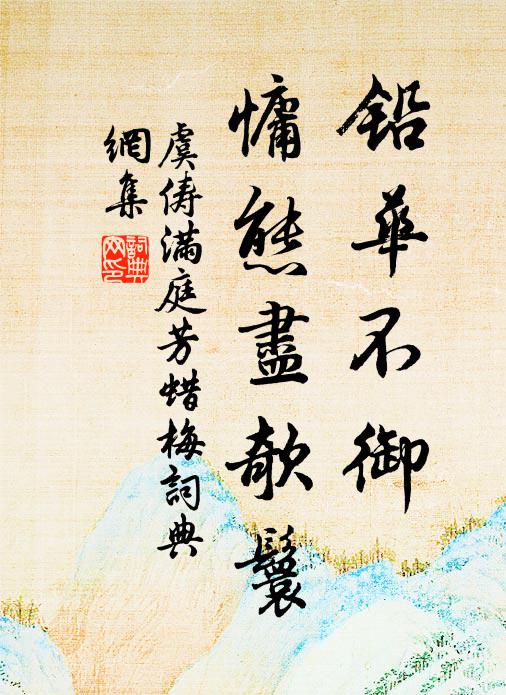 鉛華不御
慵態盡欹鬟
虞儔滿庭芳蜡梅詞典
網集
詞典
网印